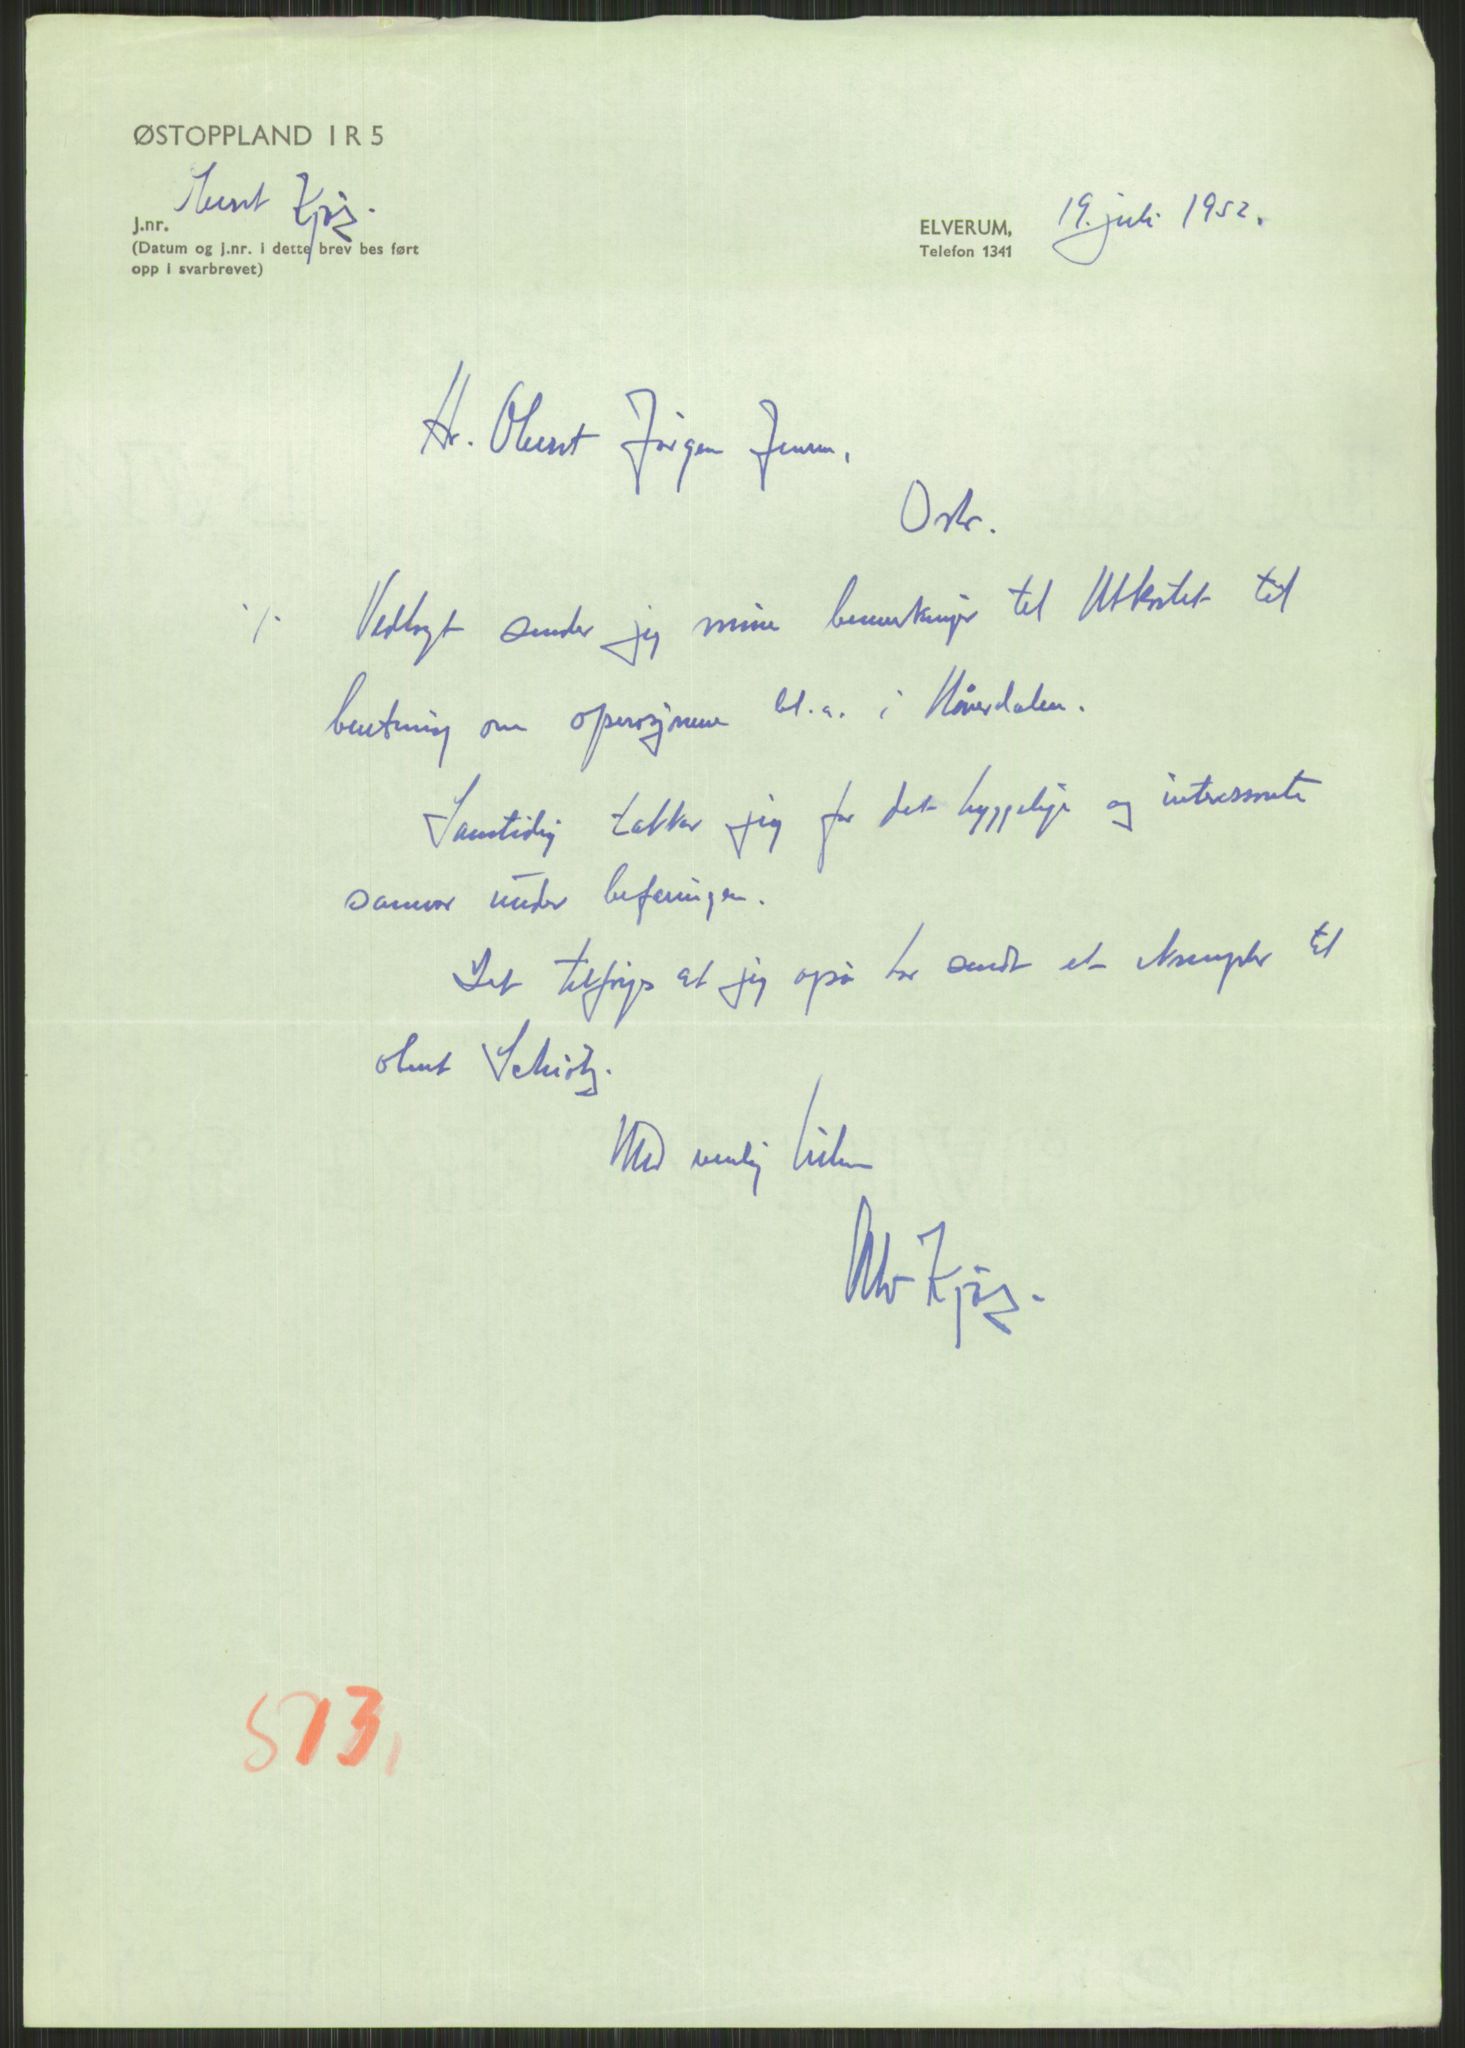 ØSTOPPLAND I R 5
Oberst Kjøs.
J.nr.
(Datum og J.nr. i dette brev bes ført
opp i svarbrevet)
ELVERUM, 19. juli 1952.
Telefon 1341
Hr. Oberst Jørgen Jensen,
Oslo.
·/· Vedlagt sender jeg mine bemerkninger til Utkastet til
beretning om operasjonene bl.a. i Våler
Samtidig takker jeg for det hyggelige og interessante
samvær under befaringen.
Det tilføyes at jeg også har sendt et eksemplar til
oberst Schiøtz.
Med vennlig hilsen
Alv Kjøs.
513,